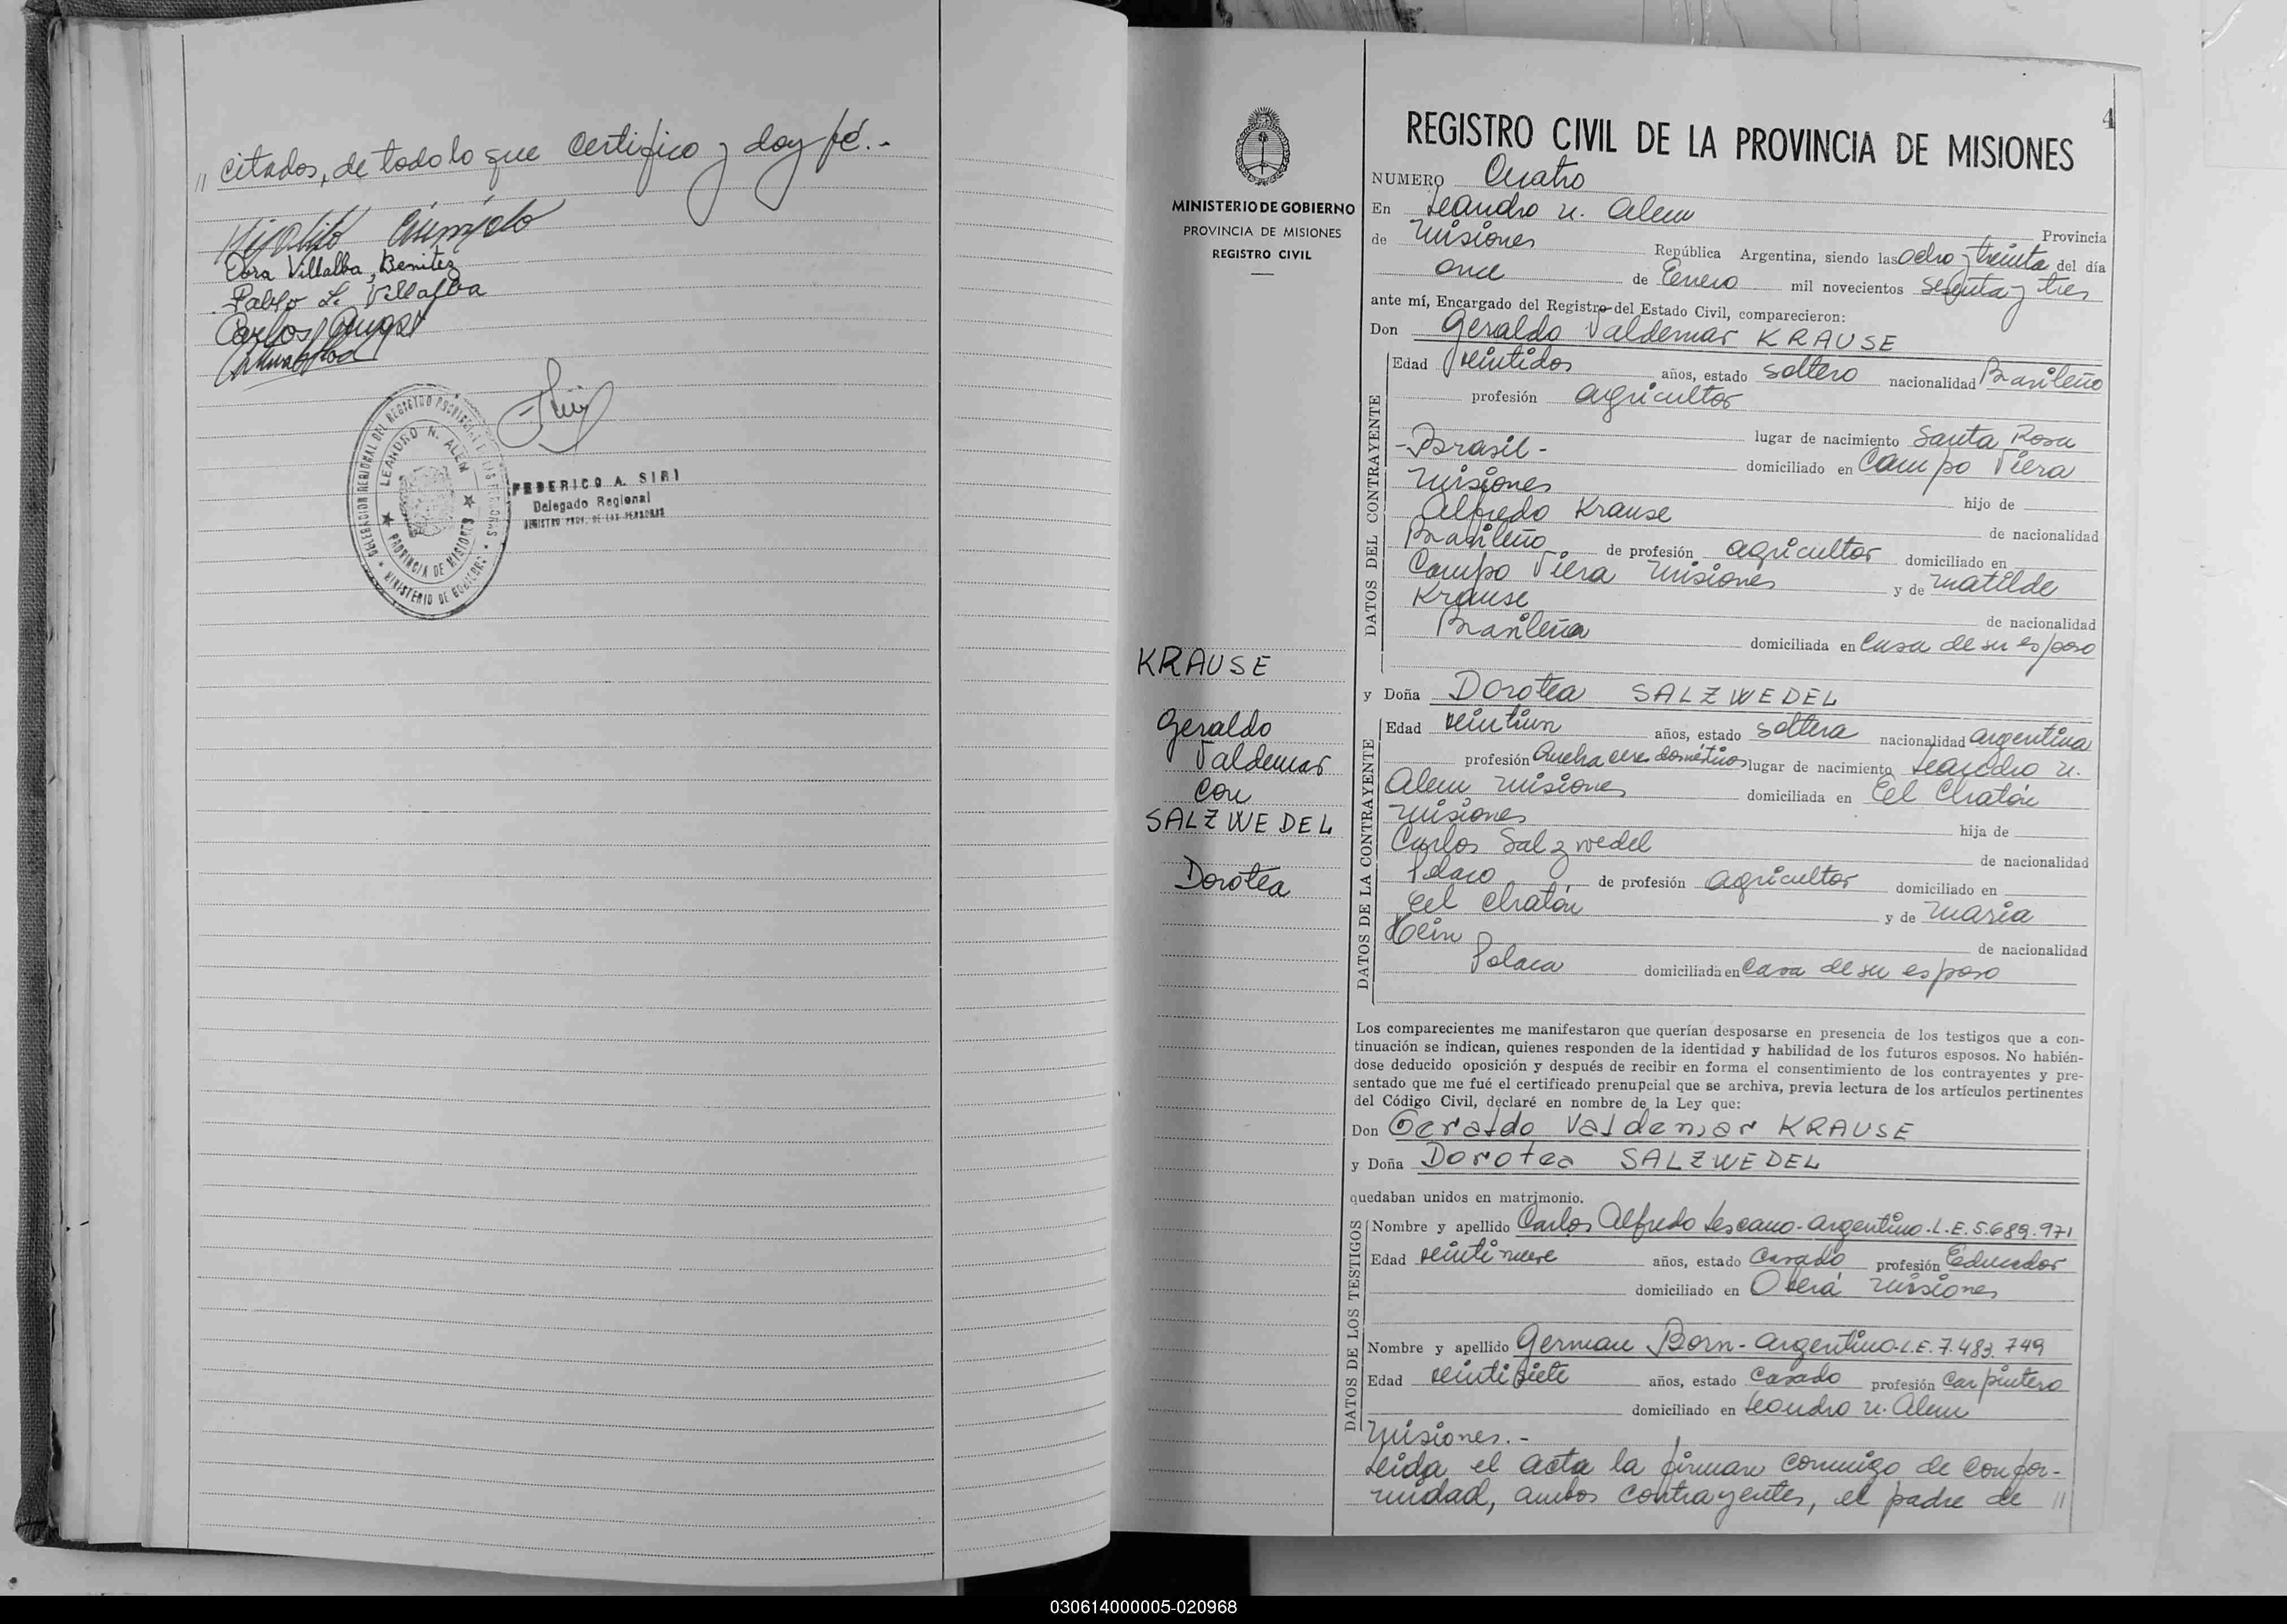 " citados, de todo lo que certifico y doy fé.-
Dora Villalba, Benitez
Pablo L. Villalba
Carlos
DELEGACION REGIONAL DEL REGISTRO PROVINCIAL DE LAS PERSONAS
MINISTERIO DE GOBIERNO
LEANDRO N. ALEM
PROVINCIA DE MISIONES
FEDERICO A. SIRI
Delegado Regional
REGISTRO PROV. DE LAS PERSONAS
MINISTERIO DE GOBIERNO
PROVINCIA DE MISIONES
REGISTRO CIVIL
KRAUSE
Geraldo
Valdemar
con
SALZWEDEL
Dorotea
4
REGISTRO CIVIL DE LA PROVINCIA DE MISIONES
NUMERO Cuatro
En Leandro N. Alem
Provincia
de Misiones República Argentina, siendo las ocho y treinta del día
once de Enero mil novecientos sesenta y tres
ante mí, Encargado del Registro del Estado Civil, comparecieron:
Don Geraldo Valdemar KRAUSE
DATOS DEL CONTRAYENTE
Edad veintidos años, estado soltero nacionalidad Brasileño
profesión agricultor
lugar de nacimiento Santa Rosa
-Brasil- domiciliado en Campo Viera
Misiones hijo de
Alfredo Krause de nacionalidad
Brasileño de profesión agricultor domiciliado en
Campo Viera Misiones y de Matilde
Krause de nacionalidad
Brasileña domiciliada en casa de su esposo
y Doña Dorotea SALZWEDEL
DATOS DE LA CONTRAYENTE
Edad veintiun años, estado soltera nacionalidad argentina
profesión Quehaceres domésticos lugar de nacimiento Leandro N.
Alem Misiones domiciliada en El Chatón
Misiones hija de
Carlos Salzwedel de nacionalidad
Polaco de profesión agricultor domiciliado en
El Chatón y de Maria
Hein de nacionalidad
Polaca domiciliada en casa de su esposo
Los comparecientes me manifestaron que querían desposarse en presencia de los testigos que a con-
tinuación se indican, quienes responden de la identidad y habilidad de los futuros esposos. No habién-
dose deducido oposición y después de recibir en forma el consentimiento de los contrayentes y pre-
sentado que me fué el certificado prenupcial que se archiva, previa lectura de los artículos pertinentes
del Código Civil, declaré en nombre de la Ley que:
Don Geraldo Valdemar KRAUSE
y Doña Dorotea SALZWEDEL
quedaban unidos en matrimonio.
DATOS DE LOS TESTIGOS
Nombre y apellido Carlos Alfredo Lescano-argentino-L.E.5.689.971
Edad veintinueve años, estado Casado profesión Educador
domiciliado en Oberá Misiones
Nombre y apellido German Born-argentino-L.E.7.483.749
Edad veintisiete años, estado Casado profesión Carpintero
domiciliado en Leandro N. Alem
Misiones.-
Leida el acta la firman conmigo de confor-
midad, ambos contrayentes, el padre de "
030614000005-020968